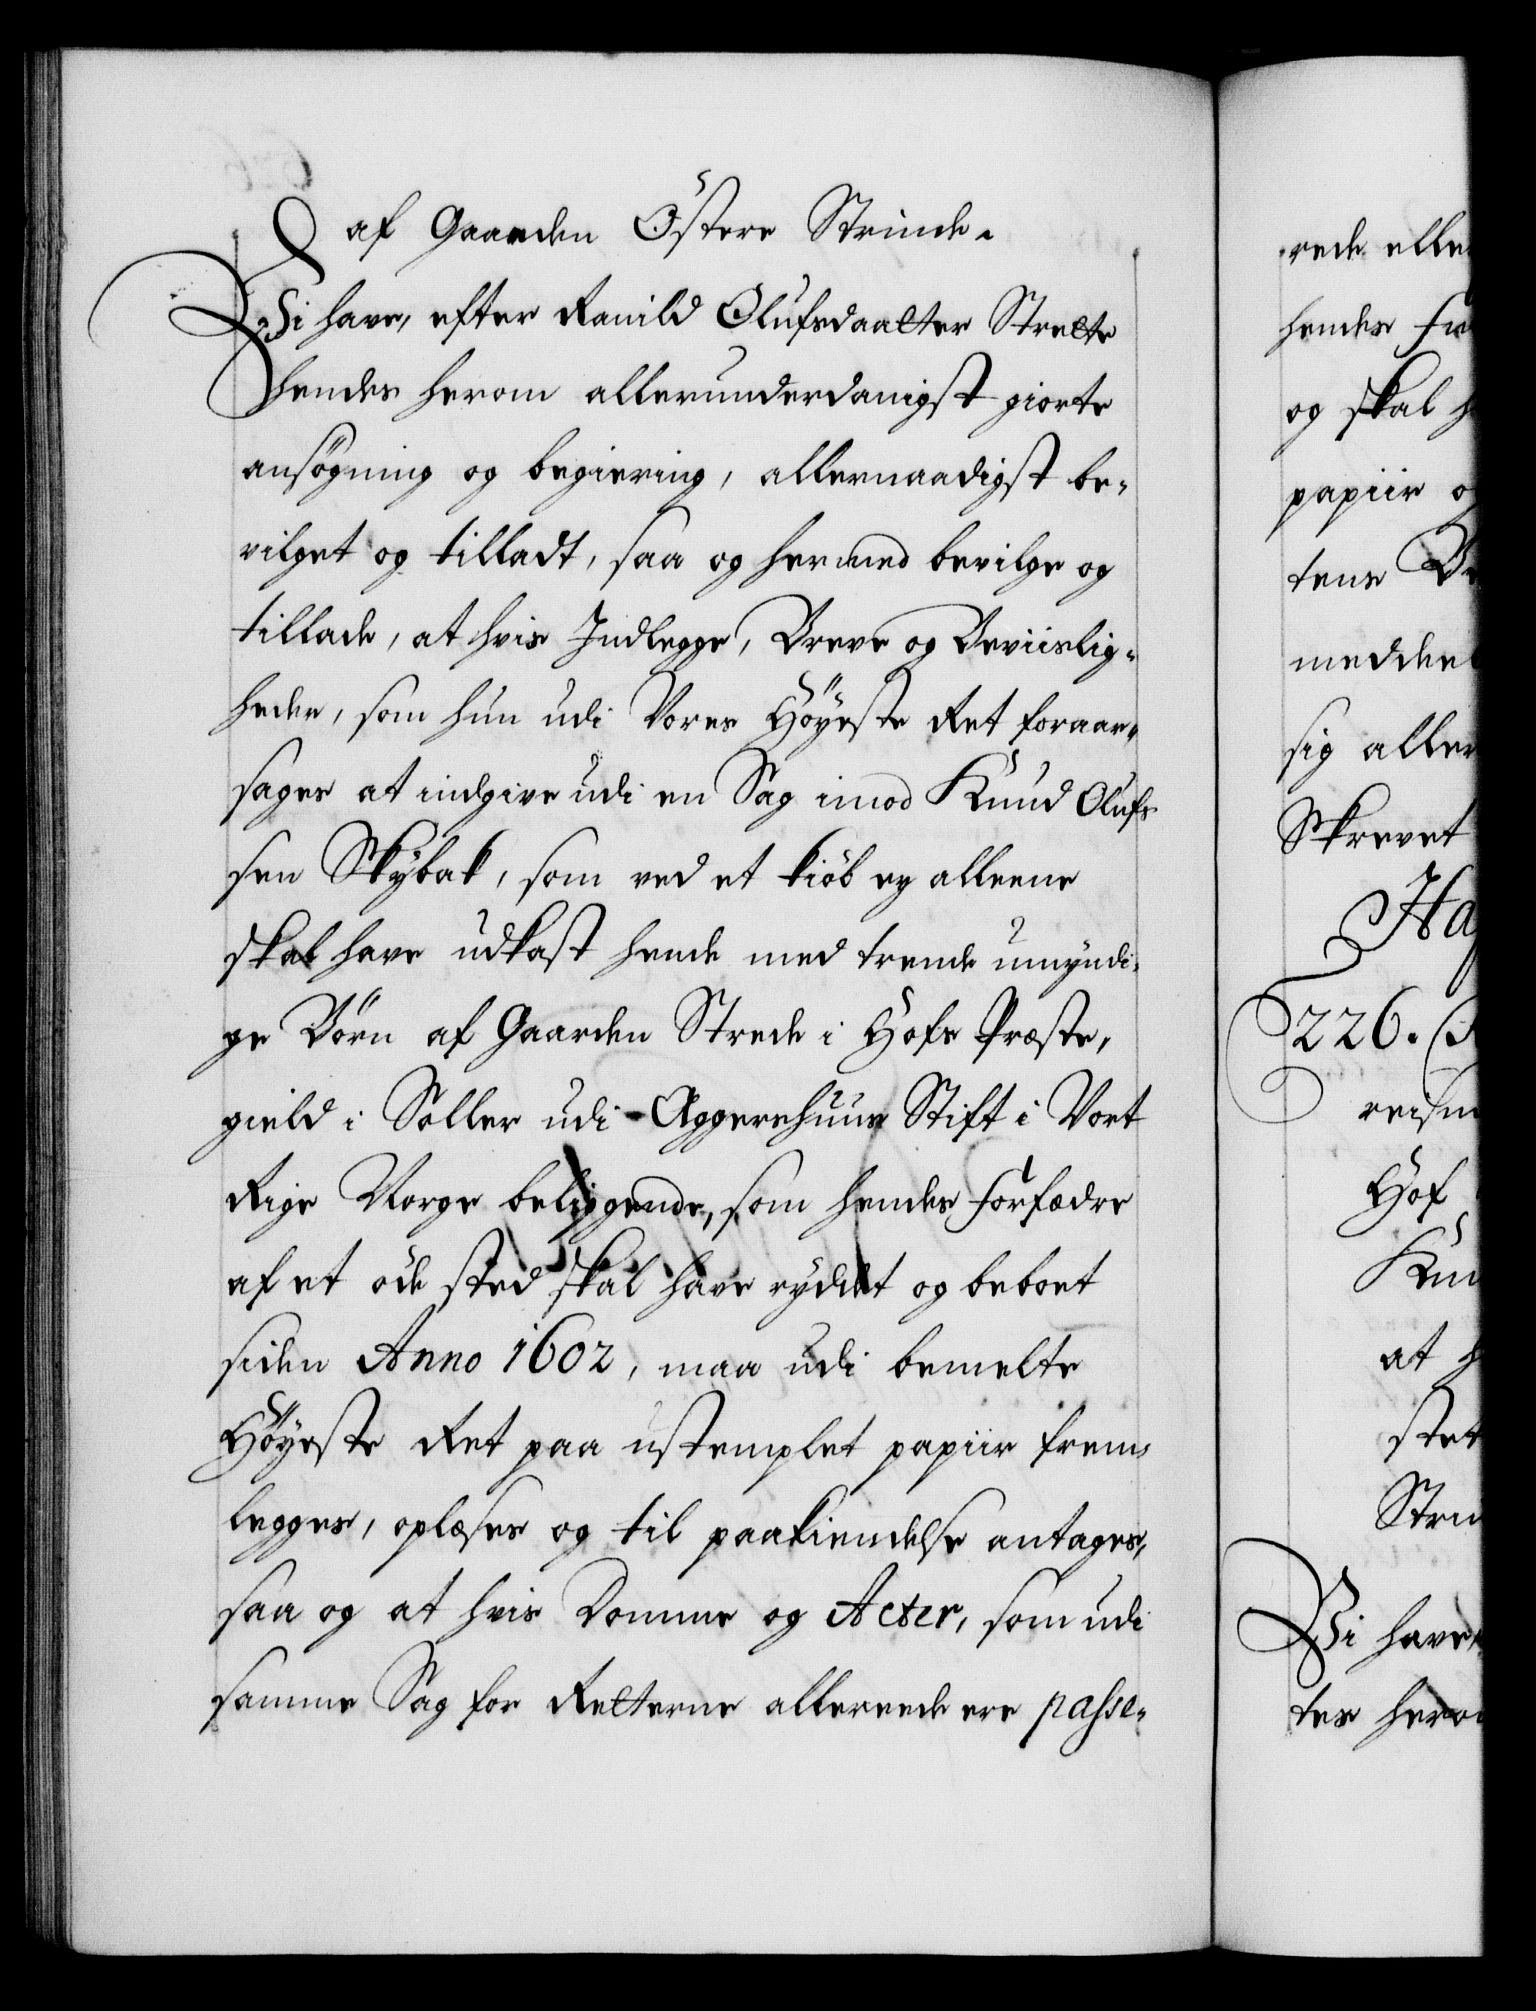 af Gaarden Östere Strinde.
Vi have, efter Ranild Olufsdaatter Strette
hendes herom allerunderdanigst giorte
ansögning og begiering, allernaadigst be-
vilget og tilladt, saa og hermed bevilge og
tillade, at hvis Indlegge, Breve og Beviislig-
heder, som hun udi Vores Höyeste Ret foraar-
sages at indgive udi en Sag imod Knud Olufs
sen Skybak, som ved et kiöb ey alleene
skal have udkast hende med trende umyndi-
ge Börn af Gaarden Strede i Hofs Præste-
gield i Soller udi Aggershuus Stift i Vort
Rige Norge beliggende, som hendes Forfædre
af et öde sted skal have ryddet og beboet
siden Anno 1602, maa udi bemelte
Höyeste Ret paa ustemplet papiir frem-
legges, oplæses og til paakiendelse antages,
saa og at hvis Domme og Acter, som udi
samme Sag for Retterne allereede ere passe-
rede elle
hendes
og skal
papiir
tens
meddel
sig aller
Skrevet
226.
Höf
Knu
at
stet
Strin
Vi have
tes hero